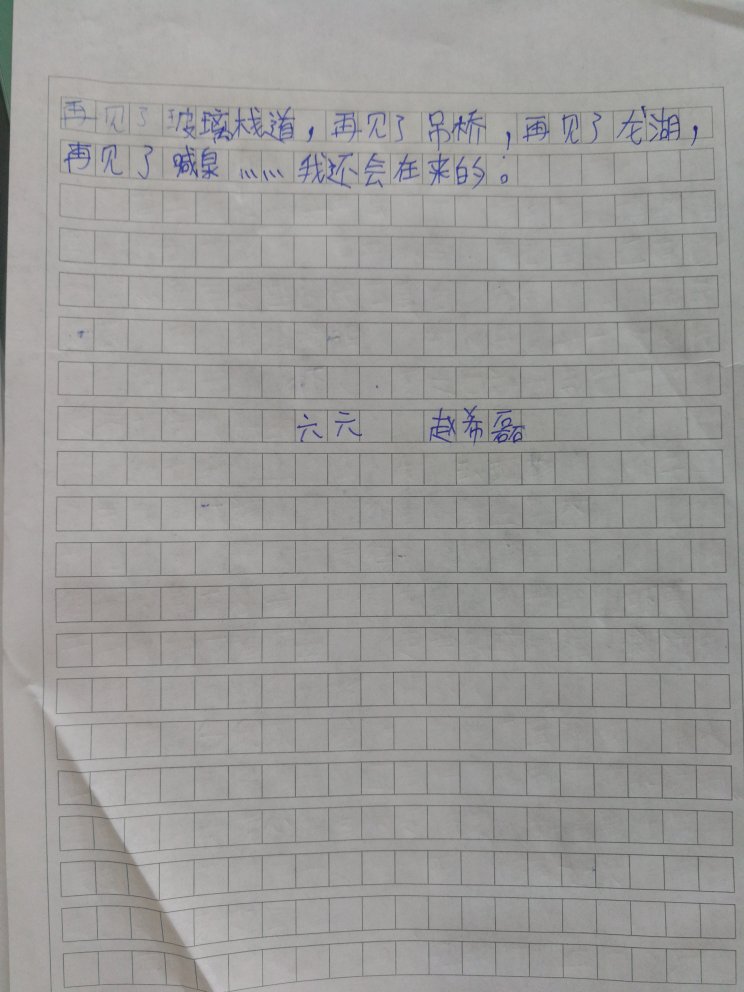 再见了玻璃栈道，再见了吊桥，再见了龙湖，
再见了喊泉……我还会在来的。
六元 赵希磊